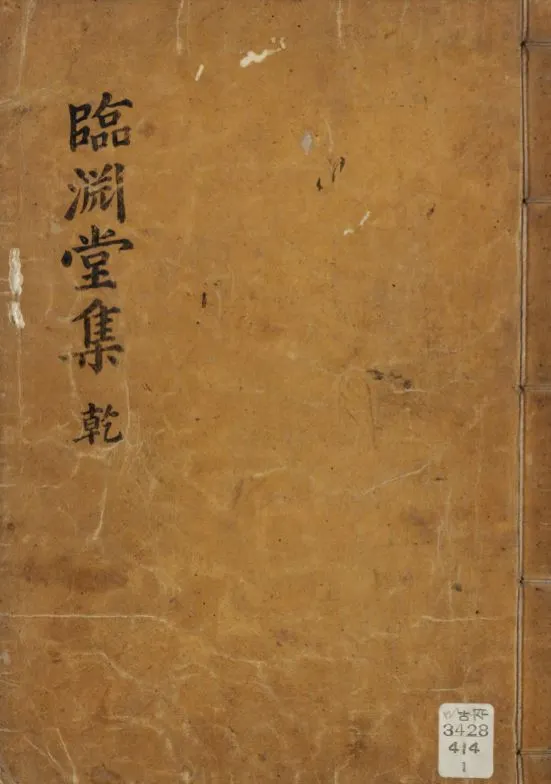 臨淵堂集 乾
농자
3428
414
1